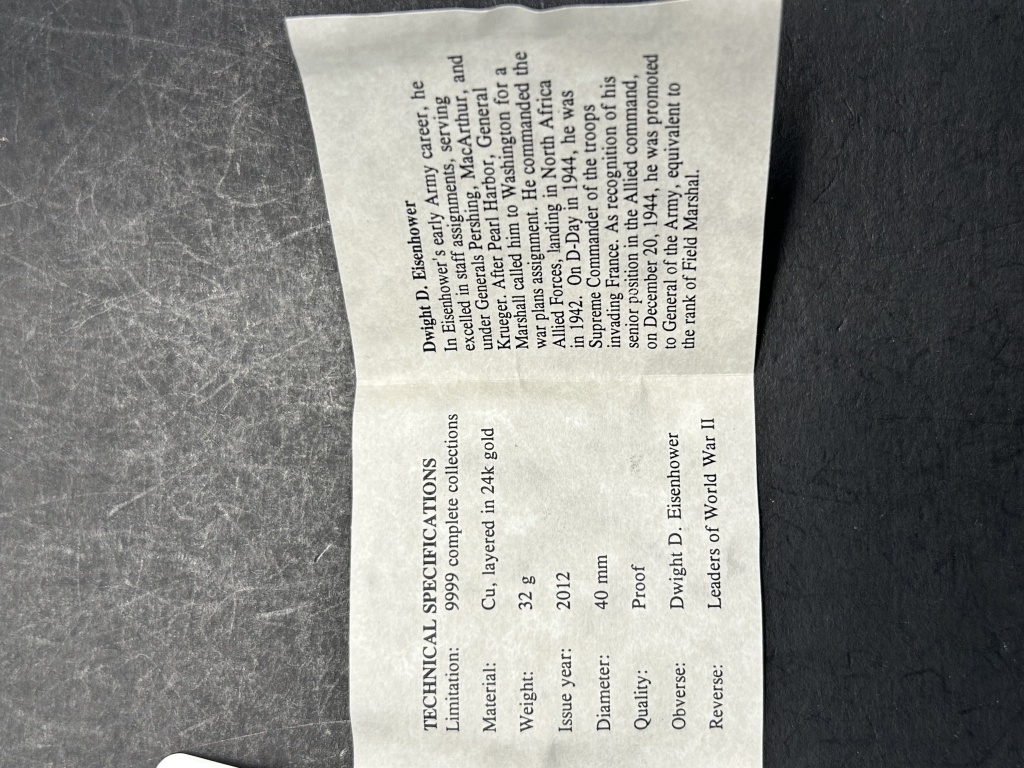 TECHNICAL SPECIFICATIONS
Limitation: 9999 complete collections
Material: Cu, layered in 24k gold
Weight: 32 g
Issue year: 2012
Diameter: 40 mm
Quality: Proof
Obverse: Dwight D. Eisenhower
Reverse: Leaders of World War II
Dwight D. Eisenhower
In Eisenhower's early Army career, he
excelled in staff assignments, serving
under Generals Pershing, MacArthur, and
Krueger. After Pearl Harbor, General
Marshall called him to Washington for a
war plans assignment. He commanded the
Allied Forces, landing in North Africa
in 1942. On D-Day in 1944, he was
Supreme Commander of the troops
invading France. As recognition of his
senior position in the Allied command,
on December 20, 1944, he was promoted
to General of the Army, equivalent to
the rank of Field Marshal.